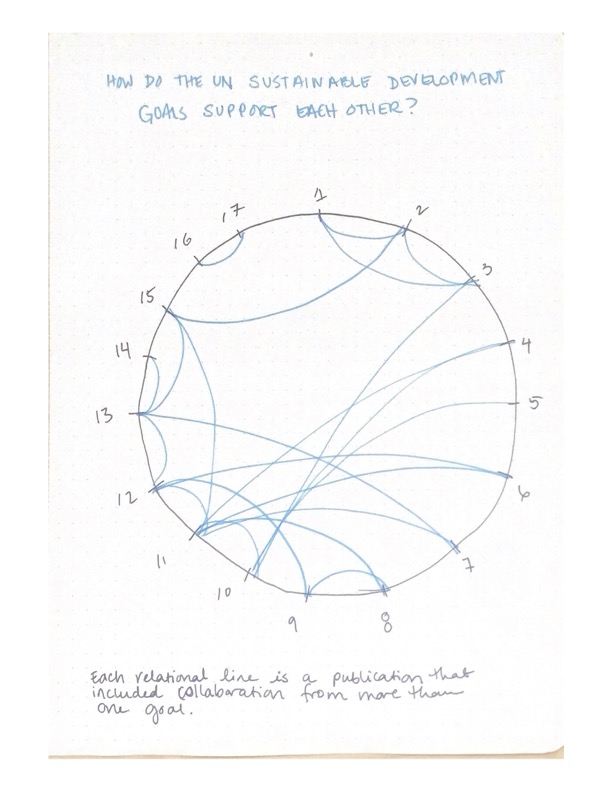 HOW DO THE UN SUSTAINABLE DEVELOPMENT
GOALS SUPPORT EACH OTHER?
1
2
3
4
5
6
7
8
9
10
11
12
13
14
15
16
17
Each relational line is a publication that
included collaboration from more than
one goal.